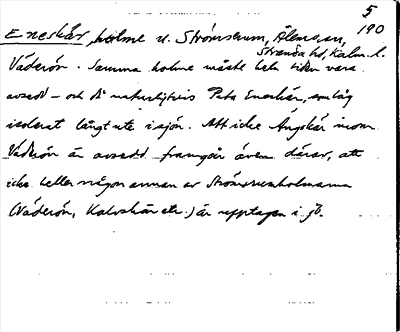 5
190
Eneskär, holme u. Strömserum, Ålem sn,
Stranda hd, Kalm. l.
Väderön. Samma holme måste hela tiden vara
avsedd – och är naturligtvis Peta Eneskär, som låg
isolerat långt ute i sjön. Att icke Ängskär inom
Väderön är avsedd framgår även därav, att
icke heller någon annan av Strömserumholmarna
(Väderön, Kalvskär etc.) är upptagen i jb.